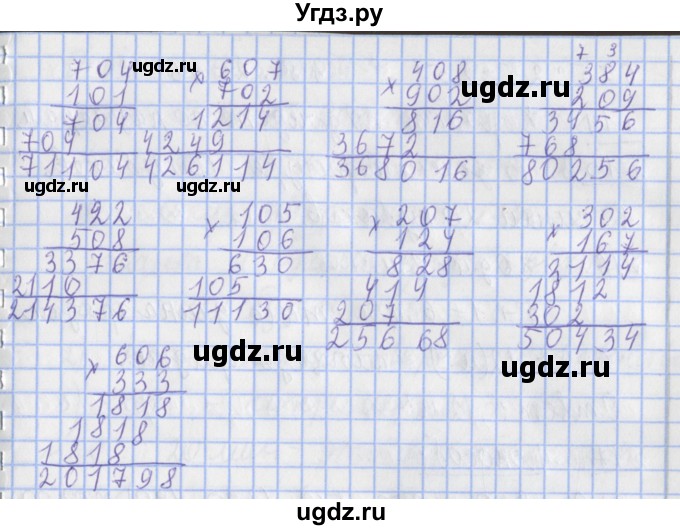 Угдз.ру
704
101
704
704
71104
ugdz.ru
× 607
702
1214
4249
426114
ugdz.ru
× 408
902
816
3672
368016
ugdz.ru
7 3
384
209
3456
768
80256
ugdz.ru
422
508
3376
2110
214376
× 105
106
630
105
11130
ugdz.ru
× 207
124
828
414
207
25668
× 302
167
2114
1812
302
50434
ugdz.ru
× 606
333
1818
1818
1818
201798
ugdz.ru